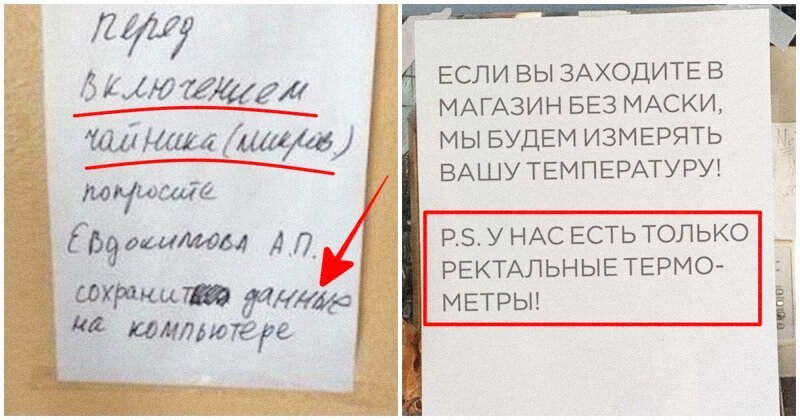 перед
включением
чайника (микров.)
попросите
Евдокимова А.П.
сохранить данные
на компьютере
ЕСЛИ ВЫ ЗАХОДИТЕ В
МАГАЗИН БЕЗ МАСКИ,
МЫ БУДЕМ ИЗМЕРЯТЬ
ВАШУ ТЕМПЕРАТУРУ!
P.S. У НАС ЕСТЬ ТОЛЬКО
РЕКТАЛЬНЫЕ ТЕРМО-
МЕТРЫ!